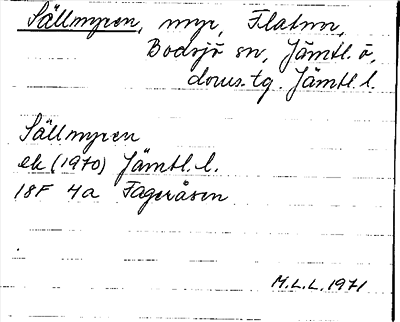 Sällmyren, myr, Flatnor,
Bodsjö sn, Jämtl. ö.
doms. tg. Jämtl. l.
Sällmyren
ek (1970) Jämtl. l.
18F 4a Fageråsen
M.L.L. 1971